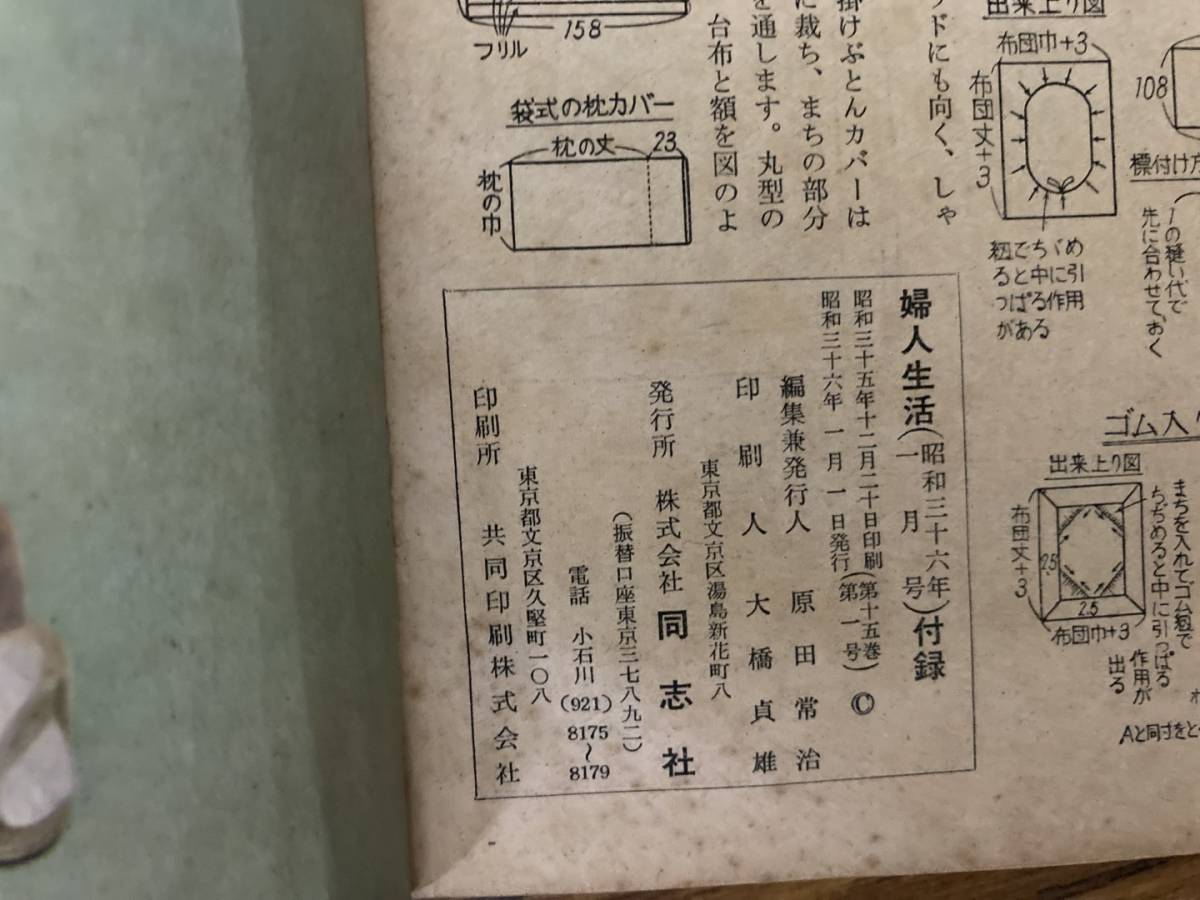 フリル
158
袋式の枕カバー
枕の丈
23
枕の巾
ッドにも向く、しゃ
掛けぶとんカバーは
に裁ち、まちの部分
を通します。丸型の
台布と額を図のよ
出来上り図
布団巾+3
布団丈+3
紐でちぢめ
ると中に引
っぱる作用
がある
108
標付け方
1の縫い代で
先に合わせて、おく
ゴム入り
出来上り図
布団丈+3
25
25
布団巾+3
まちを入れてゴム紐で
ちぢめると中に引っぱる
作用が
出る
Aと同寸をと
婦人生活(昭和三十六年一月号)付録
昭和三十五年十二月二十日印刷(第十五巻
昭和三十六年 一月 一日発行(第一号) ©
編集兼発行人 原田常治
印刷人 大橋貞雄
東京都文京区湯島新花町八
発行所 株式会社 同志社
(振替口座東京三七八九二)
電話 小石川(921)8175~8179
東京都文京区久堅町一〇八
印刷所 共同印刷株式会社